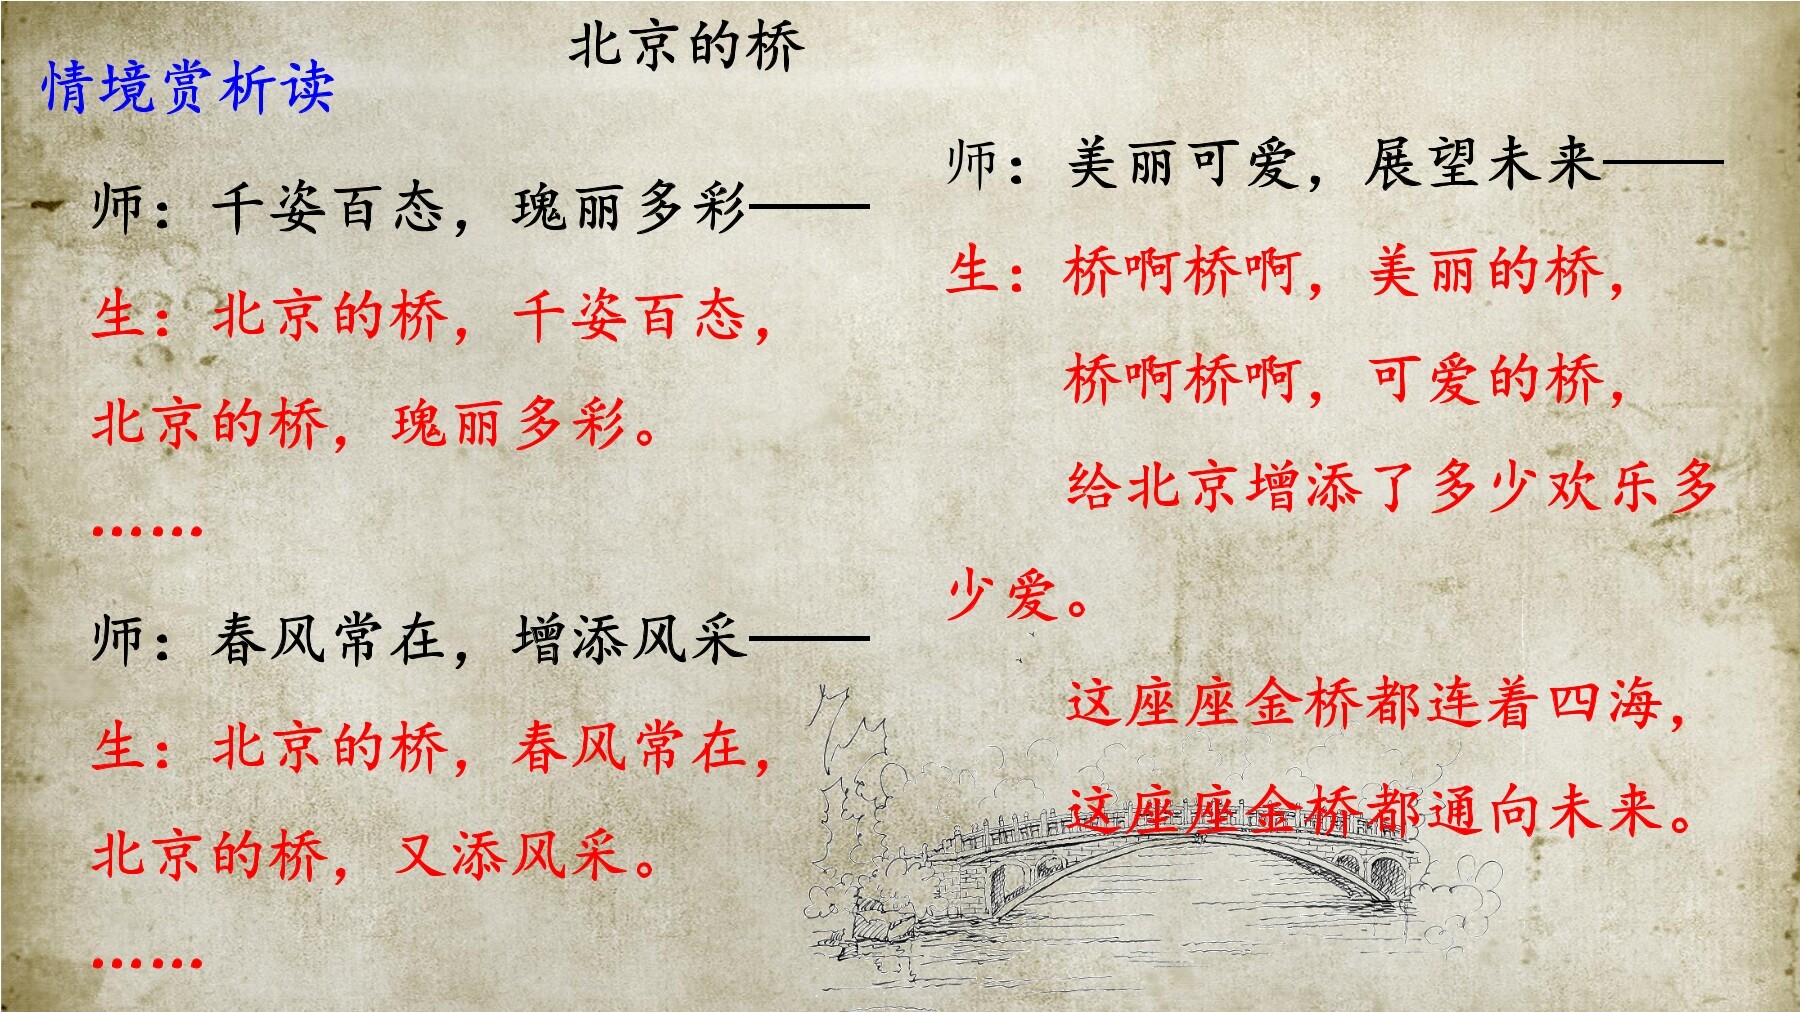 北京的桥
情境赏析读
师：千姿百态，瑰丽多彩——
生：北京的桥，千姿百态，
北京的桥，瑰丽多彩。
……
师：春风常在，增添风采——
生：北京的桥，春风常在，
北京的桥，又添风采。
……
师：美丽可爱，展望未来——
生：桥啊桥啊，美丽的桥，
桥啊桥啊，可爱的桥，
给北京增添了多少欢乐多
少爱。
这座座金桥都连着四海，
这座座金桥都通向未来。